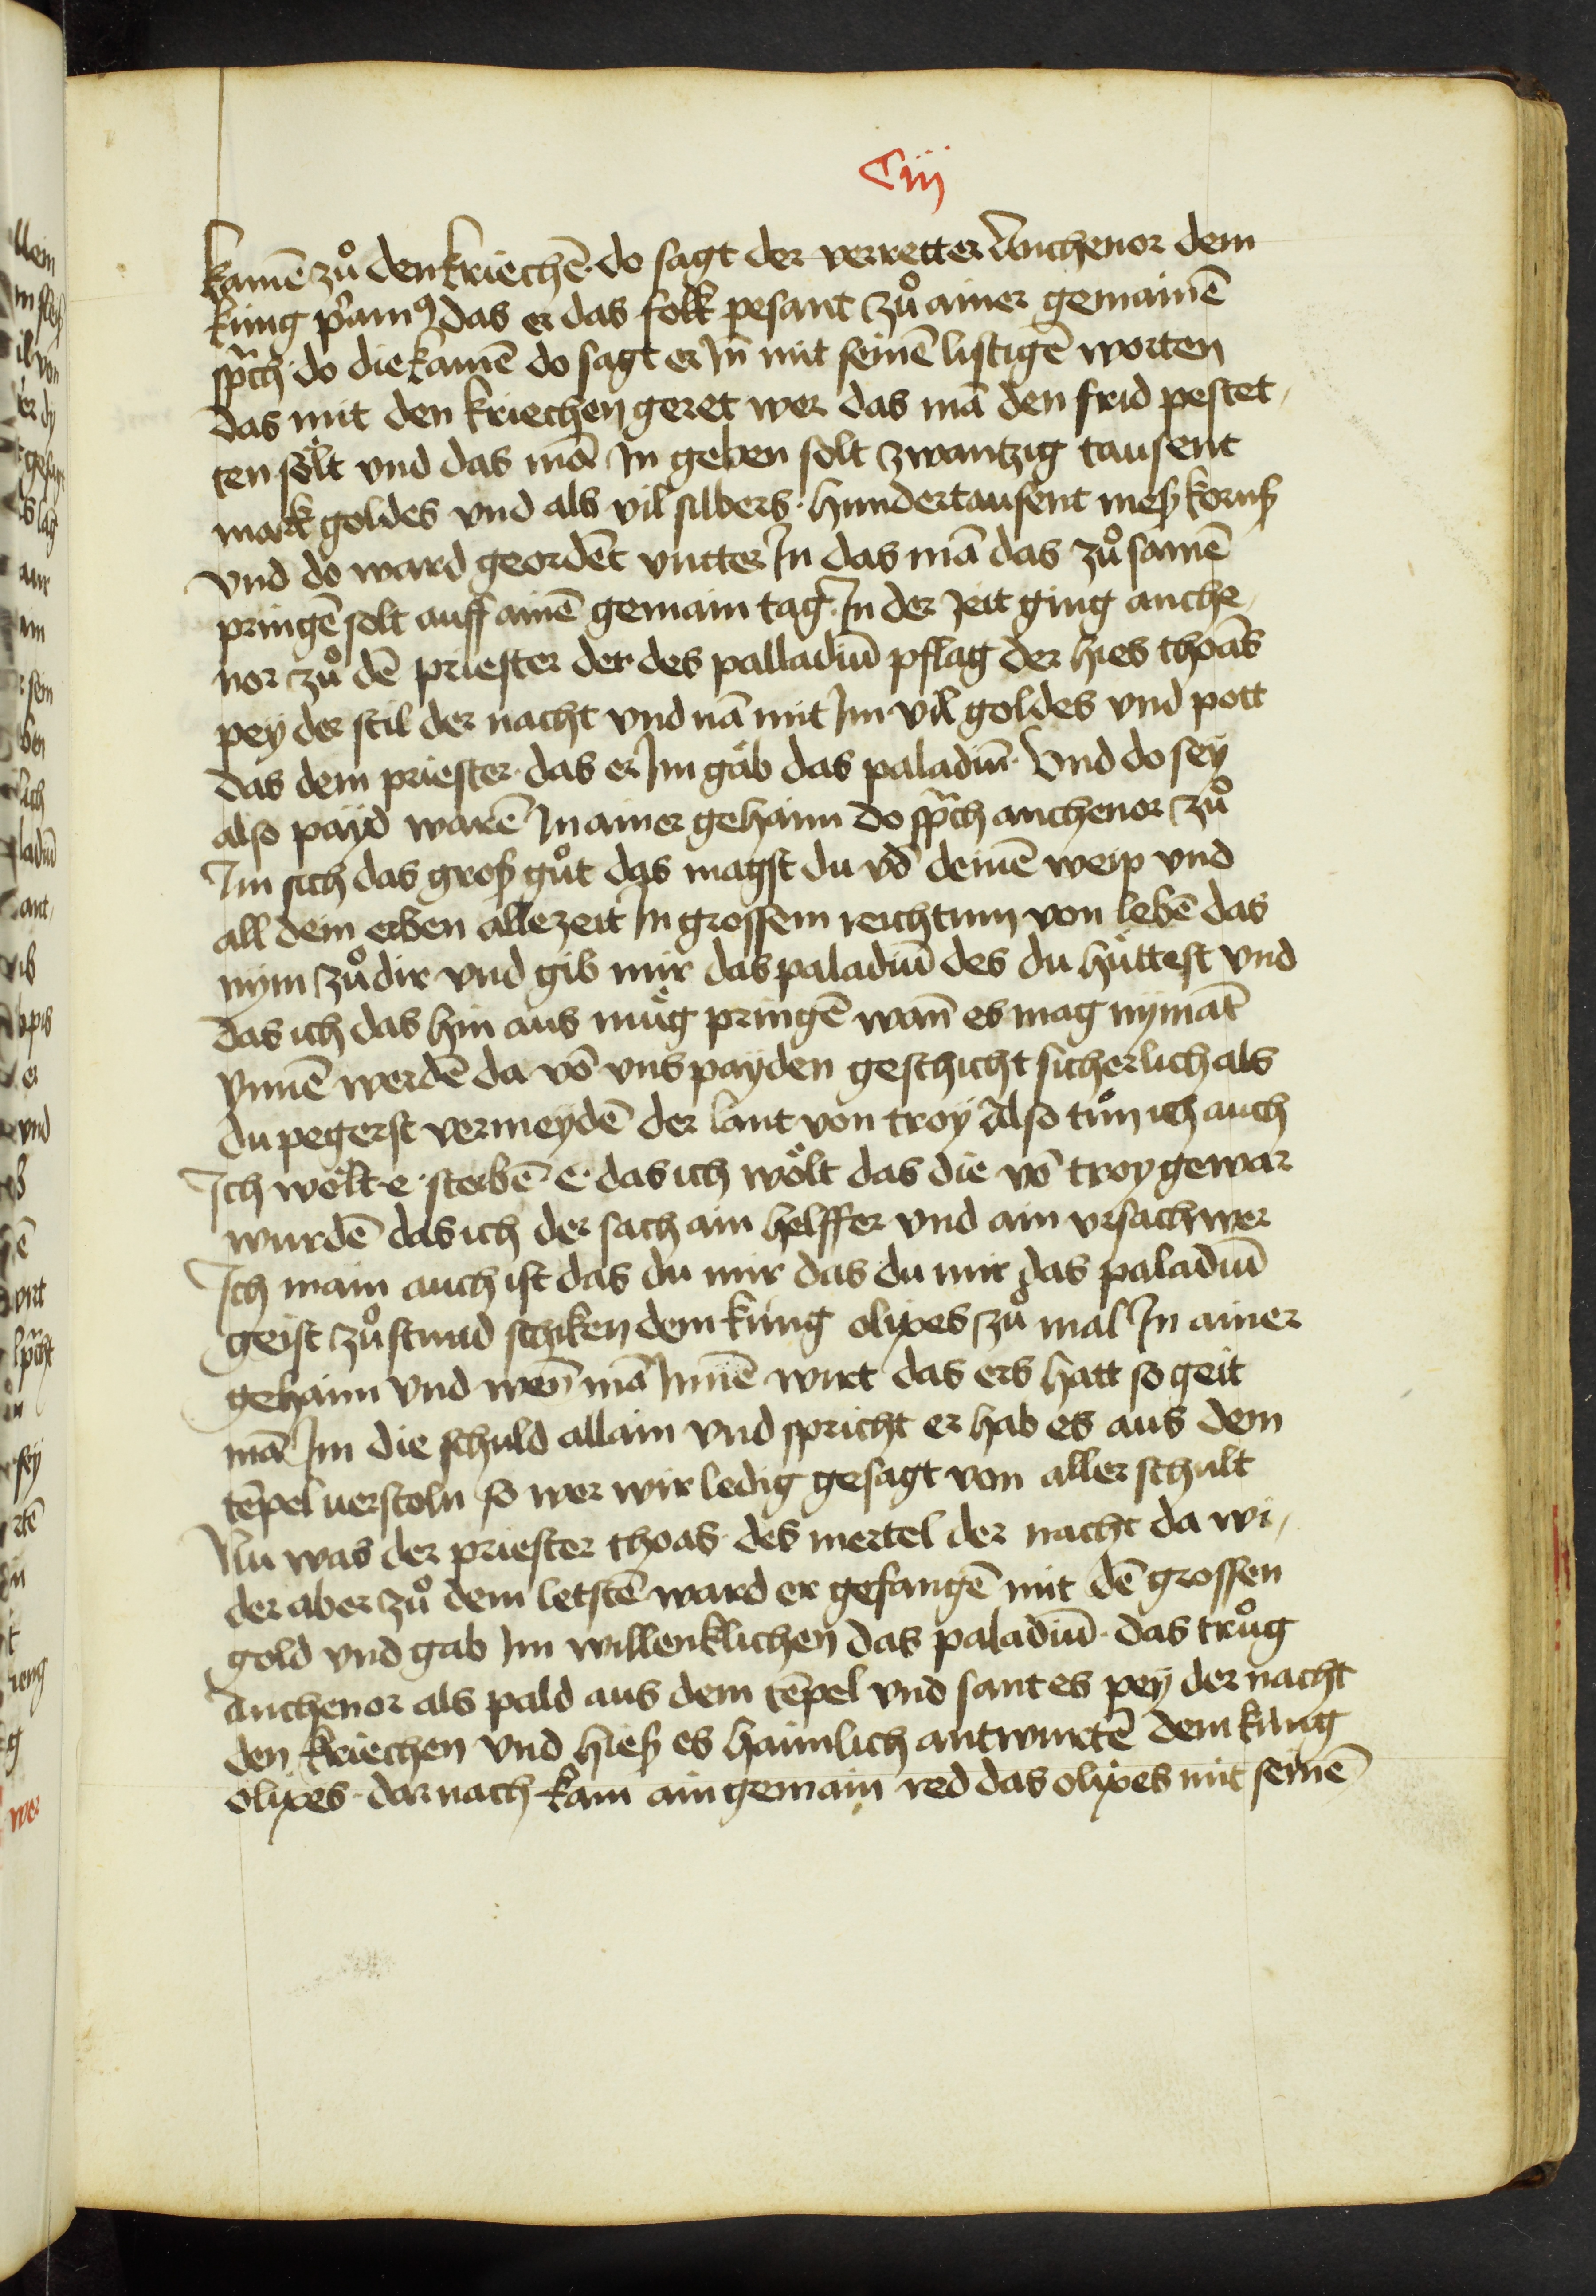 Ciij
kamē zů den kriechē· do sagt der verretter Anthenor dem
küng p̄amꝰ das er das folk pesant zů ainer gemainē
sp̄ch· do die kamē do sagt er Jn̄ mit seinē listigē worten
das mit den kriechen geret wer das mā den frid pestet
ten sölt vnd das mā Jn geben solt zwantzig tausent
mark goldes vnd als vil silbers· hundertausent meß kornß
vnd do ward geordēt vntter Jn das mā das zů samē
pringē solt auff ainē gemain tag· Jn der zeit ging anthe
nor zů dē priester der des palladiū pflag der hies thoas
pey der stil der nacht vnd nā mit Jm vil goldes vnd pott
das dem priester· das er Jm gäb das paladiū· Vnd do sey
also payd warē Jn ainer gehaim do sp̄ch anthenor zů
Jm sich das groß gůt das magst du vō deinē weip vnd
all dein erben alle zeit Jn grossem reichtum von lebē das
nym zů dir vnd gib mir das paladiū des du hüttest vnd
das ich das hin aus müg pringē wan̄ es mag nymāt
ynnē werdē da vō vns payden geschicht sicherlich als
du pegerst vermeydē der laut von troy Also tůn ich auch
Jch wolt·e· sterbē·e· das ich wölt das die vō troy gewar
wurdē das ich der sach ain helffer vnd ain vrsach wer
Jch main auch ist das du mir das du mir das paladiū
geist zů stund schiken dem küng olixes zů mal Jn ainer
gehaim vnd wen̄ mā Jnnē wirt das ers hatt so geit
mā Jm die schuld allain vnd spricht er hab es aus dem
tēpel uerstoln so wer wir ledig gesagt von aller schult
Nu was der priester thoas· des mertel der nacht da wi
der aber zů dem letstē ward er gefangē mit dē grossen
gold vnd gab Jm willenklichen das paladiū· das trůg
Anthenor als pald aus dem tēpel vnd sant es pey der nacht
den kriechen vnd hieß es haimlich antwurtē dem küng
olixes· dar nach kam ain gemain red das olixes mit seinē